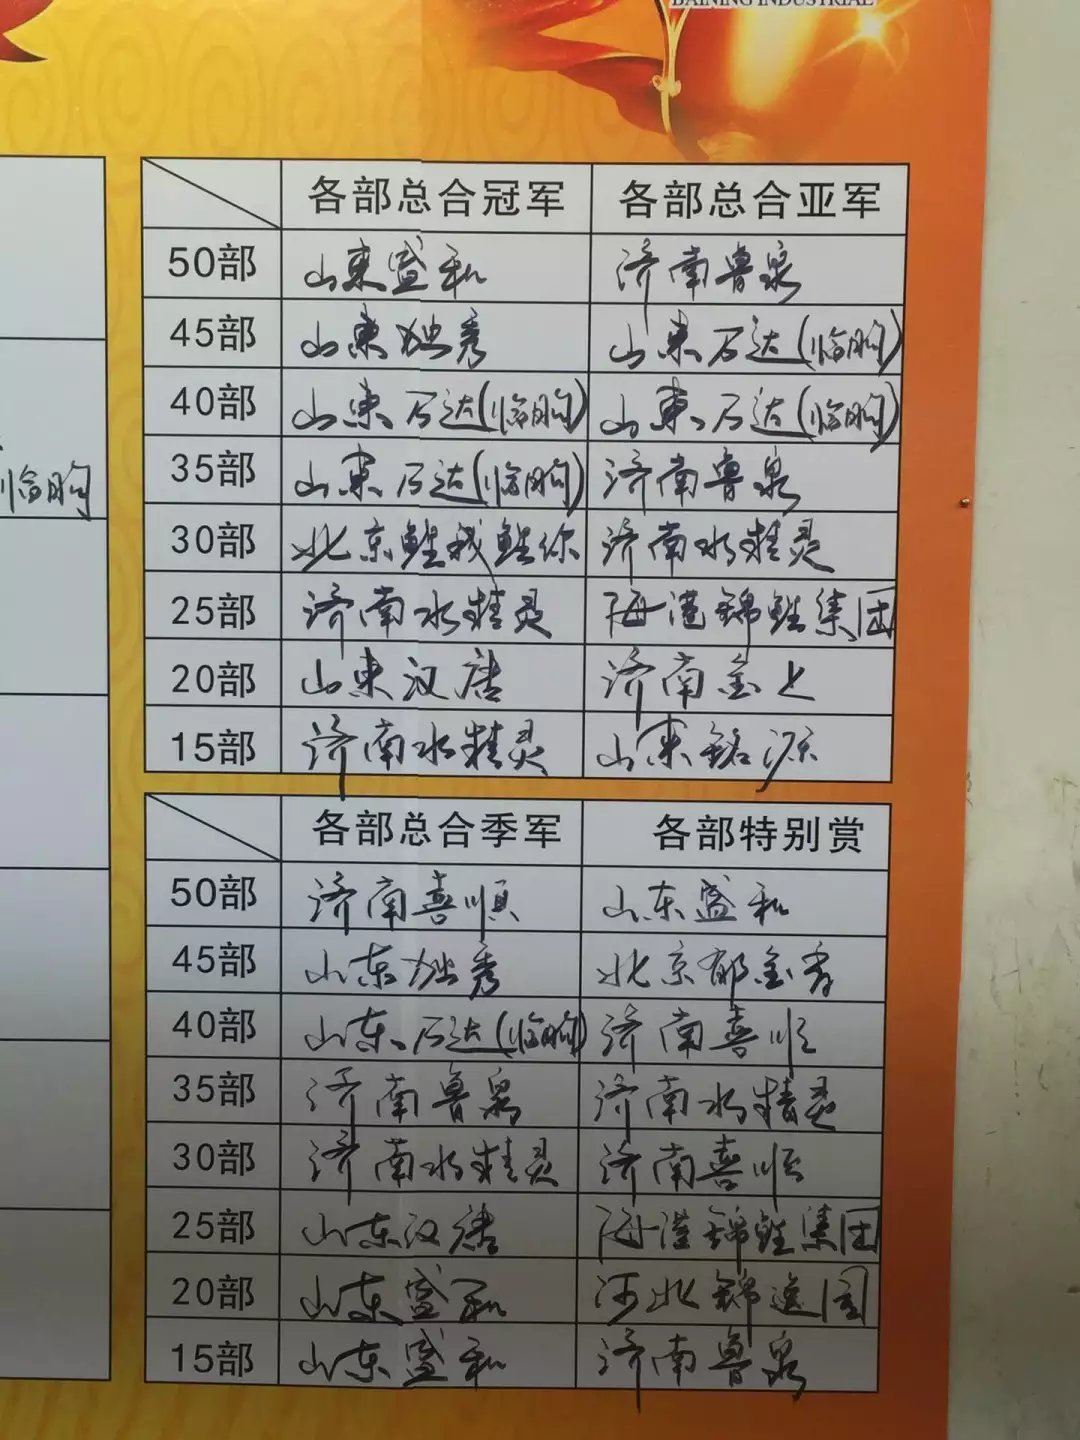 BAINING INDUSTRIAL
各部总合冠军 各部总合亚军
50部 山东盛和 济南鲁泉
45部 山东独秀 山东石达(临朐)
40部 山东石达(临朐) 山东石达(临朐)
35部 山东石达(临朐) 济南鲁泉
临朐
30部 北京鲤我鲤你 济南水精灵
25部 济南水精灵 海港锦鲤集团
20部 山东汉唐 济南金上
15部 济南水精灵 山东铭源
各部总合季军 各部特别赏
50部 济南喜顺 山东盛和
45部 山东独秀 北京郁金香
40部 山东石达(临朐) 济南喜顺
35部 济南鲁泉 济南水精灵
30部 济南水精灵 济南喜顺
25部 山东汉唐 海港锦鲤集团
20部 山东盛和 河北锦逸阁
15部 山东盛和 济南鲁泉